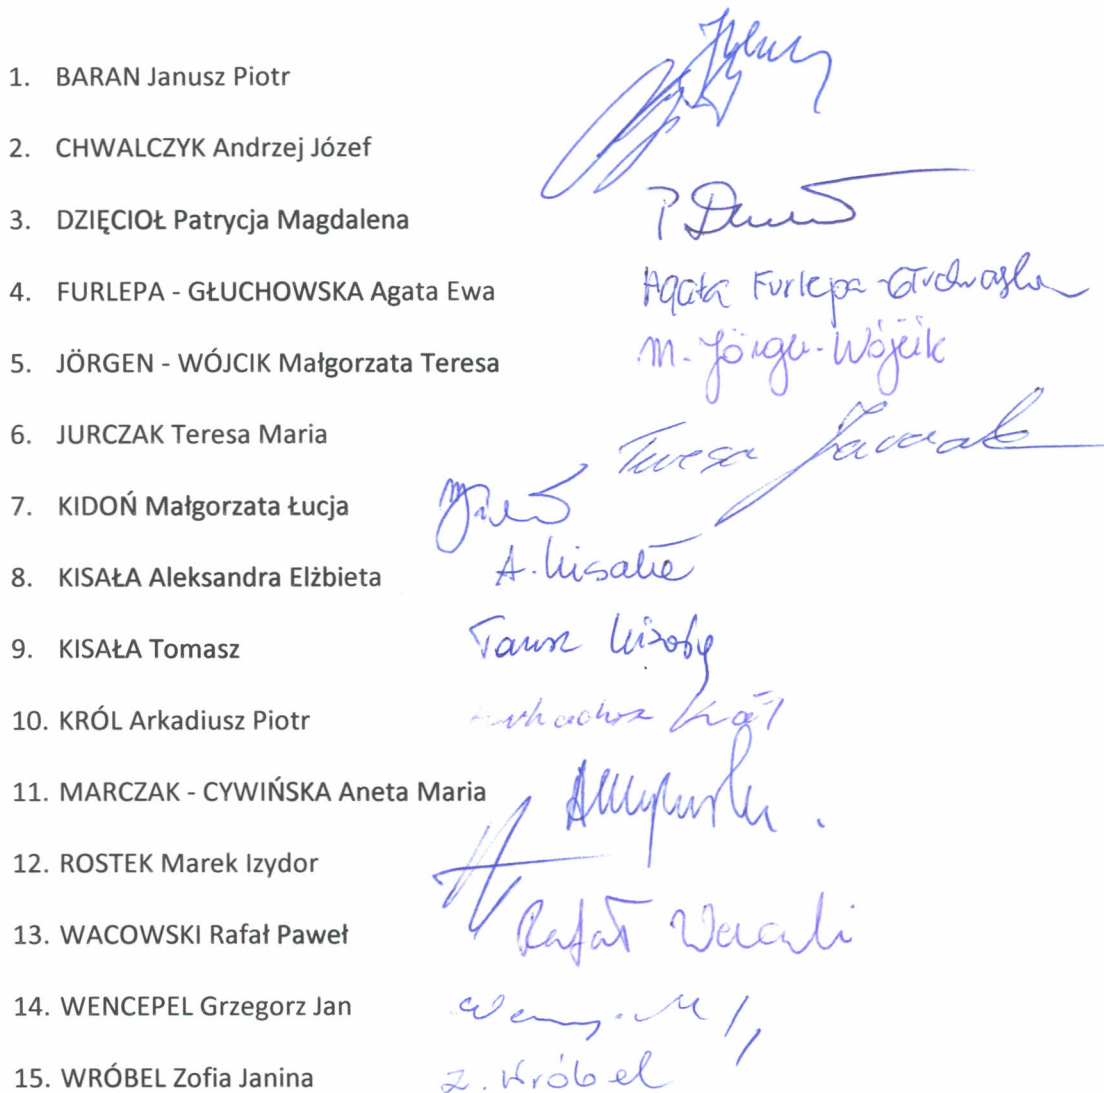 1. BARAN Janusz Piotr
2. CHWALCZYK Andrzej Józef
3. DZIĘCIOŁ Patrycja Magdalena P
4. FURLEPA - GŁUCHOWSKA Agata Ewa Agata Furlepa-
5. JÖRGEN - WÓJCIK Małgorzata Teresa M. Jörgen-Wójcik
6. JURCZAK Teresa Maria Teresa
7. KIDOŃ Małgorzata Łucja
8. KISAŁA Aleksandra Elżbieta A. Kisała
9. KISAŁA Tomasz
10. KRÓL Arkadiusz Piotr Król
11. MARCZAK - CYWIŃSKA Aneta Maria
12. ROSTEK Marek Izydor
13. WACOWSKI Rafał Paweł Rafał
14. WENCEPEL Grzegorz Jan
15. WRÓBEL Zofia Janina Z. Wróbel